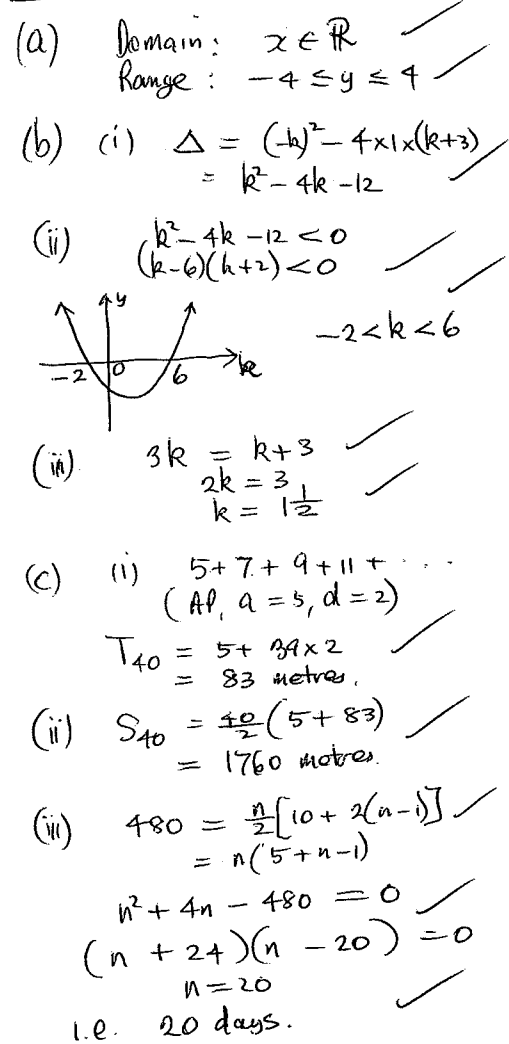 (a) Domain: x ∈ ℝ
Range: -4 ≤ y ≤ 4
(b) (i) Δ = (-k)² - 4×1×(k+3)
= k² - 4k - 12
(ii) k² - 4k - 12 < 0
(k-6)(k+2) < 0
y
-2 < k < 6
-2 0 6 k
(iii) 3k = k+3
2k = 3
k = 1 1/2
(c) (i) 5 + 7 + 9 + 11 + ...
(AP, a = 5, d = 2)
T₄₀ = 5 + 39 × 2
= 83 metres.
(ii) S₄₀ = 40/2 (5 + 83)
= 1760 metres.
(iii) 480 = n/2 [10 + 2(n-1)]
= n(5+n-1)
n² + 4n - 480 = 0
(n + 24)(n - 20) = 0
n = 20
i.e. 20 days.